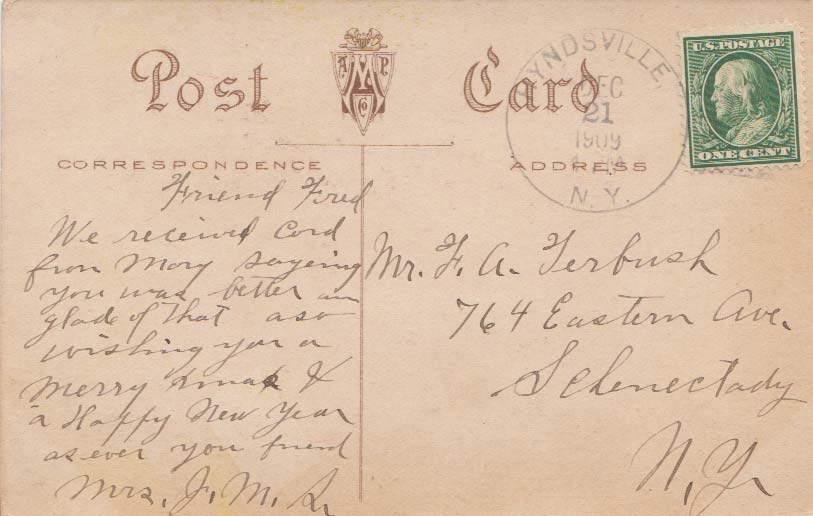 Post Card
A. P.
M
Co
YNDSVILLE,
DEC
21
1909
N. Y.
U.S. POSTAGE
ONE CENT
CORRESPONDENCE
ADDRESS
Friend Fred
We received Cord
from Mary sayeing
you was better am
glade of that aso
wishing you a
Merry Xmas &
a Happy New Year
as ever you friend
Mrs. J. M. L.
Mr. F. A. Terbush
764 Eastern Ave.
Schenectady
N. Y.